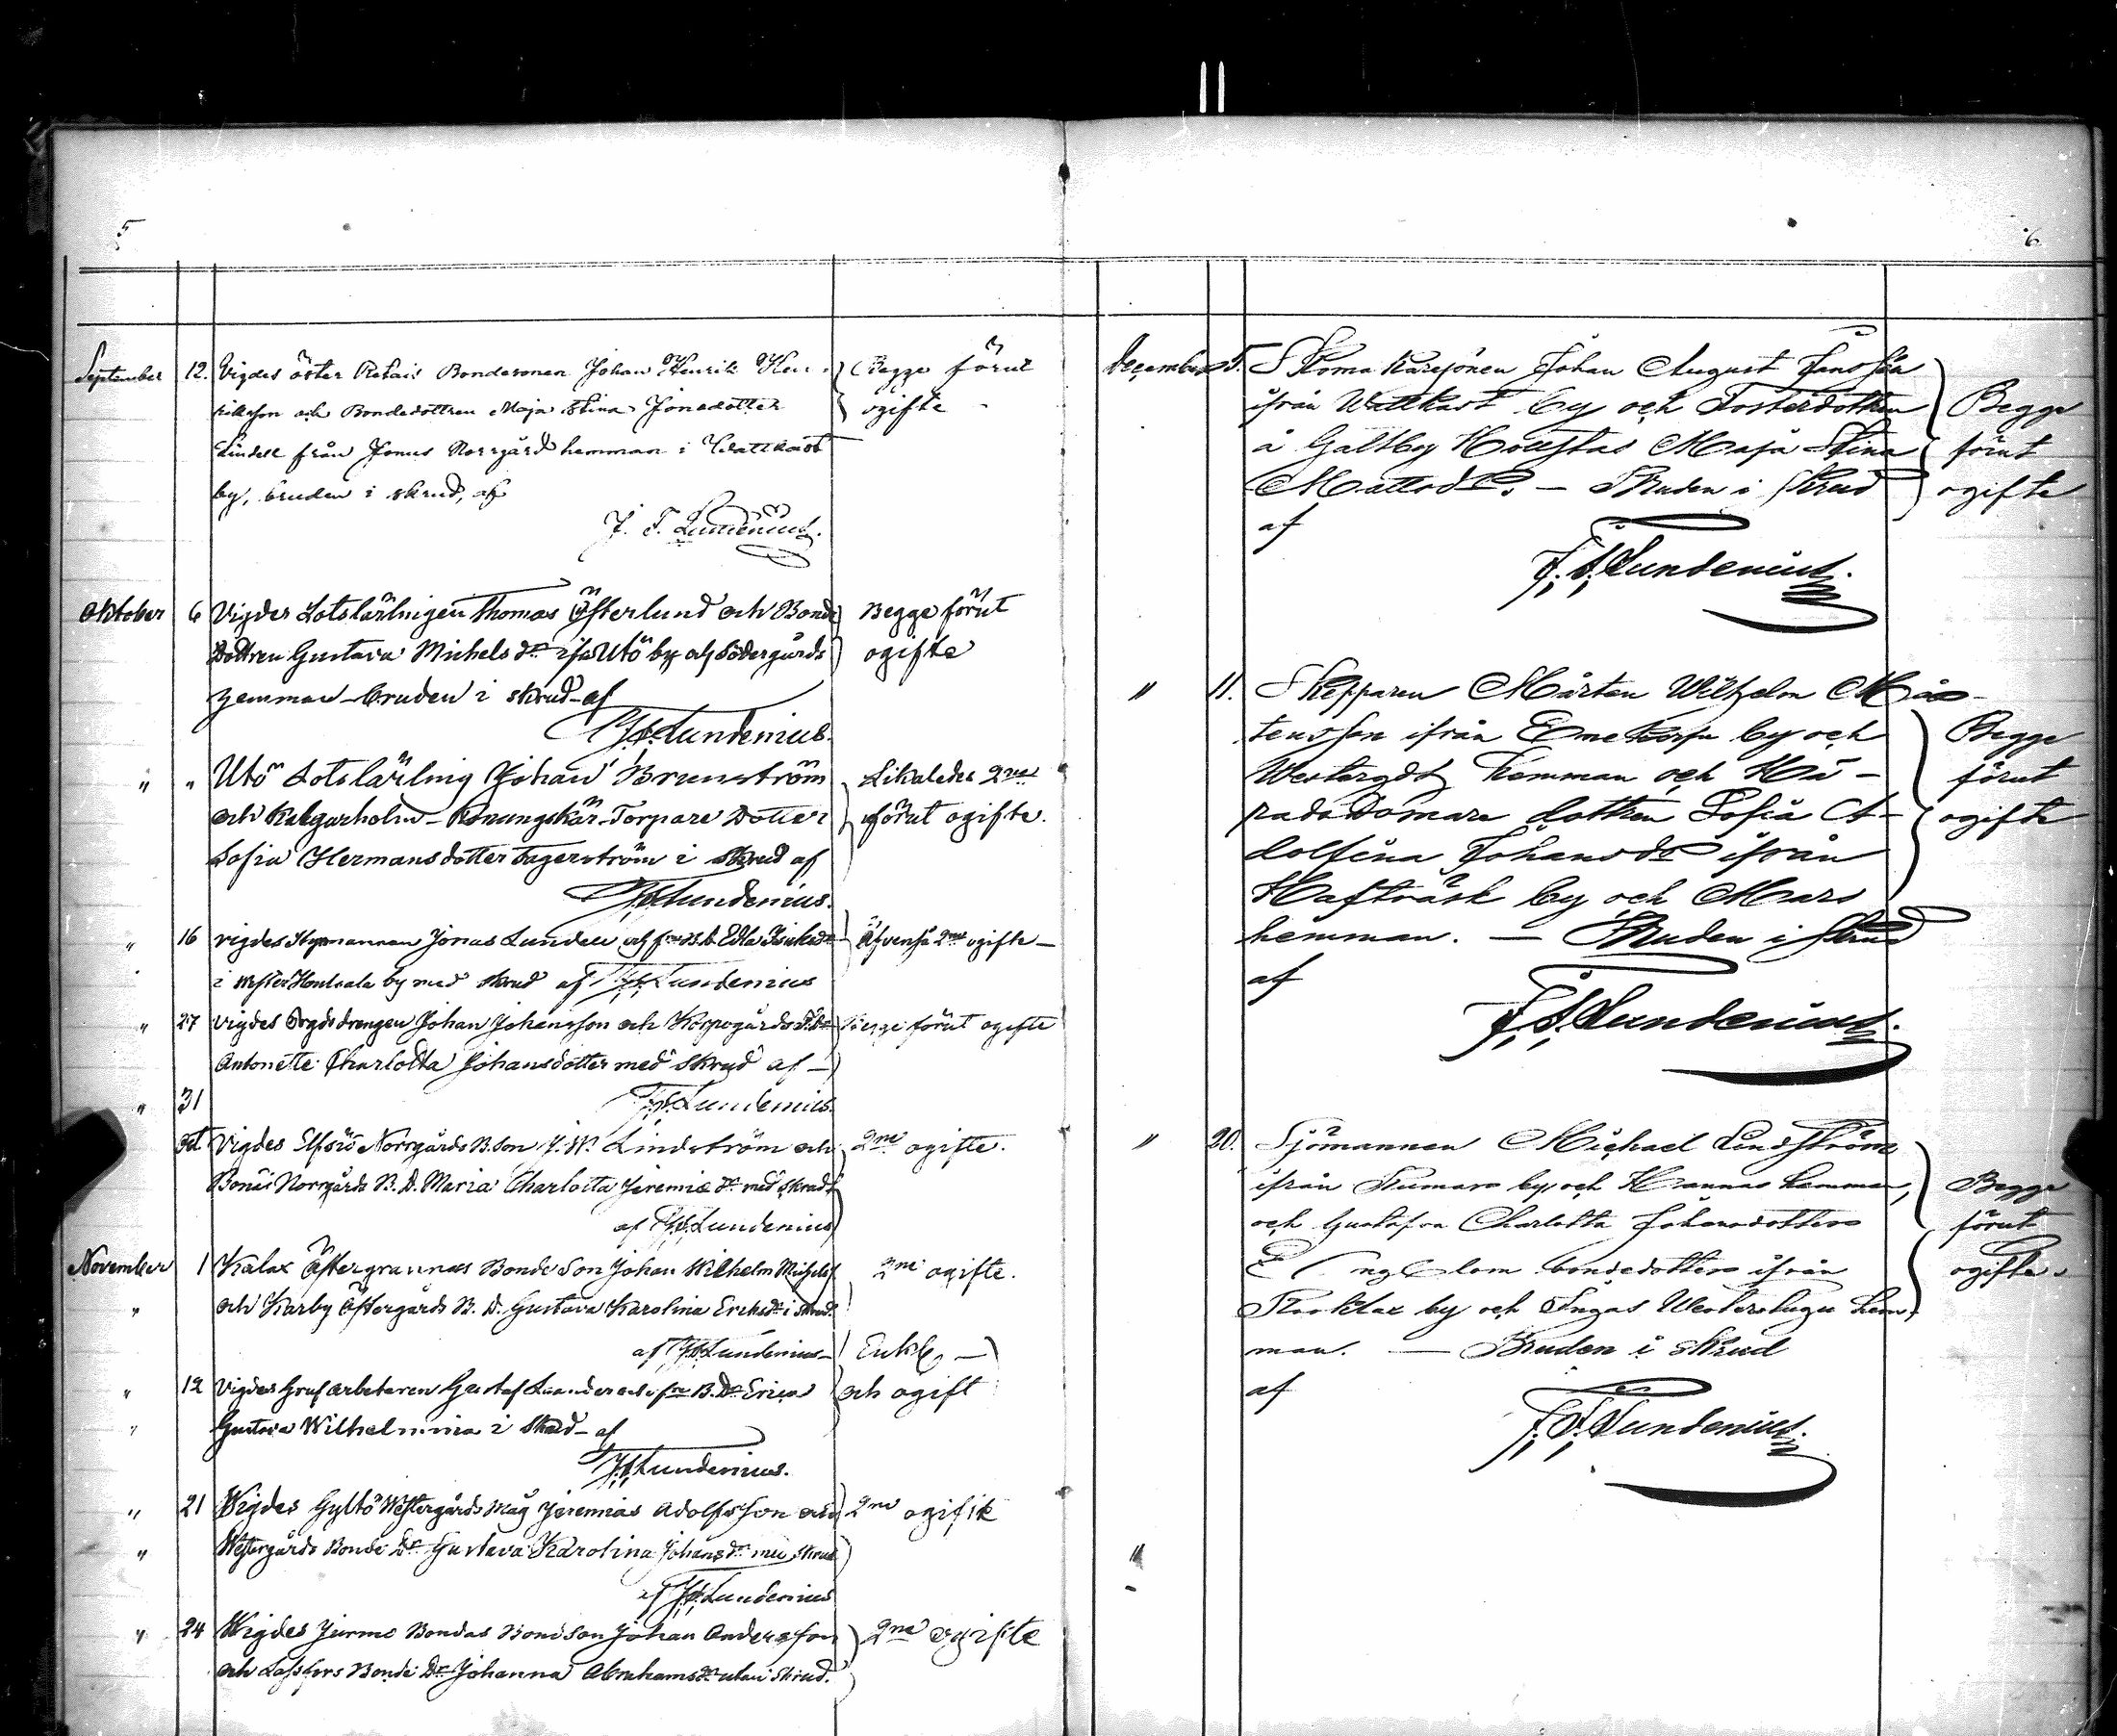 5
September 12. Vigdes öster Retais Bondesonen Johan Henrik Hen-
riksson och Bondedottren Maja Stina Jonsdotter
Lindell från Jonus Norrgård hemman i Wattkast
by, bruden i skrud, af
J. F. Lundenius.
Begge förut
ogifte
Oktober 6 Vigdes Lotslärlingen Thomas Österlund och Bonde
Dottren Gustava Michels dr ifrå Utö by och Södergårds
hemman - bruden i skrud - af
Lundenius.
Begge förut
ogifte
" " Utö Lotslärling Johan Brunström
och Kalgarholm - Konungskär Torpare Dotter
Sofia Hermansdotter Fagerström i skrud af
Lundenius.
Likaledes 2ne
förut ogifte.
" 16 vigdes Styrmannen Jonas Lundell och Edla
i Wester Houtsala by med skrud af Lundenius
Äfvenså 2ne ogifte -
" 27 vigdes drengen Johan Johansson och Korpogårds
Antonette Charlotta Johansdotter med skrud af -
Lundenius.
Begge förut ogifte
" 31
Vigdes Elfsjö Norrgårds B. Son J. W. Lindström och
Norrgårds B. D. Maria Charlotta Jeremie dr med skrud
af Lundenius
2ne ogifte.
November 1 Kalax Östergrannas Bonde Son Johan Wilhelm
" och Karby Östergårds B. D. Gustava Karolina Ericsdr i skrud
af Lundenius
2ne ogifte.
" 12 Vigdes Grufarbetaren Gustaf B. Dr Erica
" Gustava Wilhelmina i skrud - af
Lundenius.
Enkl.
och ogift
" 21 Wigdes Gyltö Westergårds Måg Jeremias Adolfsson och
" Westergårds Bonde Dr Gustava Karolina Johans dr med skrud
af Lundenius
2ne ogifte
" 24 Wigdes Jermo Bondas Bondson Johan Andersson
och Bonde Dr Johanna Abrahams dr utan skrud.
2ne ogifte
6
December 5. Skomakaresonen Johan August Jansson
ifrån Wattkast by och Fosterdottren
å Galtby Maja Stina
Matsdr. - Bruden i skrud
af
J. F. Lundenius.
Begge
förut
ogifte
" 11. Skepparen Mårten Wilhelm Mår-
tensson ifrån by och
Westergds hemman och Hä-
radsdomare dottren Sofia A-
dolfina Johansdr ifrån
Hafträsk by och Mars
hemman. - Bruden i skrud
af
J. F. Lundenius.
Begge
förut
ogifte
" 20. Sjömannen Michael Lindström
ifrån Rumars by och Hannas hemman,
och Gustafva Charlotta Johansdotter
Engblom bondedotter ifrån
by och Ingas hem-
man. - Bruden i skrud
af
J. F. Lundenius.
Begge
förut
ogifte.
"